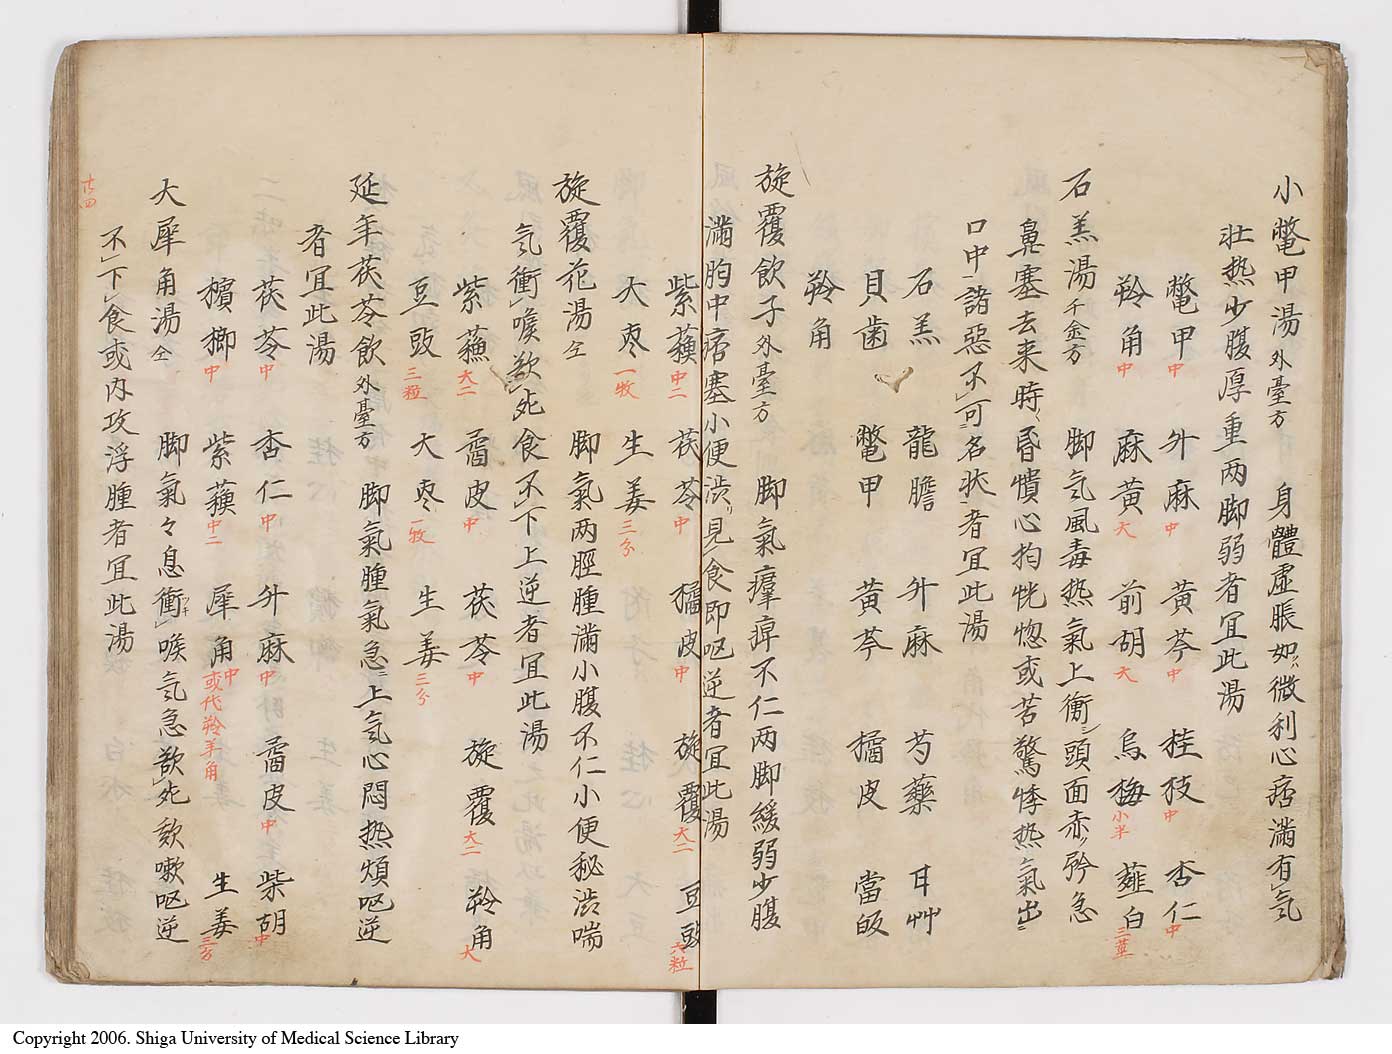 小鼈甲湯 外臺方 身體虛脹如ハ微利心痞滿有レ气
壯热少腹厚重两脚弱者宜此湯
鼈甲中 升麻中 黃芩中 桂枝中 杏仁中
羚角中 麻黃大 前胡大 烏梅小半 薤白三莖
石羔湯 千金方 脚气風毒热氣上衝シ頭面赤ク矜急
鼻塞去来時ヽ昏憒心拘恍惚或苦驚悸热氣出ニ
口中諸惡不レ可二名状一者宜此湯
石羔 龍膽 升麻 芍藥 耳艸
貝歯 鼈甲 黃芩 橘皮 當皈
羚角
旋覆飲子 外臺方 脚氣癉痺不仁两脚緩弱少腹
滿胸中痞塞小便渋リ見レ食即呕逆者宜此湯
紫蘓中二 茯苓中 橘皮中 旋覆大二 豆豉六粒
大枣一牧 生姜三分
旋覆花湯 仝 脚氣两脛腫滿小腹不仁小便秘渋喘
气衝レ喉欲レ死食不レ下上逆者宜此湯
紫蘓大二 橘皮中 茯苓中 旋覆大二 羚角大
豆豉三粒 大枣一牧 生姜三分
延年茯苓飲 外臺方 脚氣腫氣急ニ上气心悶热煩呕逆
者宜此湯
茯苓中 杏仁中 升麻中 橘皮中 柴胡中
檳榔中 紫蘓中二 犀角中或代羚羊角 生姜三分
大犀角湯 仝 脚氣々息衝ツキレ喉气急欲レ死欬嗽呕逆
不レ下レ食或内攻浮腫者宜此湯
十四
Copyright 2006. Shiga University of Medical Science Library